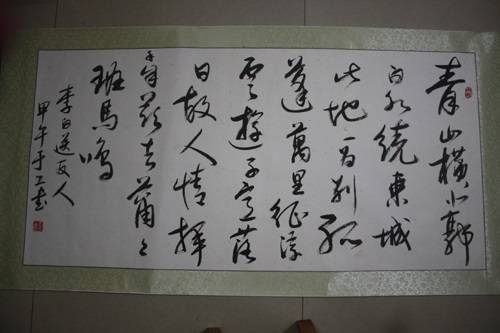 青山橫北郭
白水繞東城
此地一為別孤
蓬萬里征浮
雲遊子意落
日故人情揮
手自茲去蕭々
班馬鳴
李白送友人
甲午于